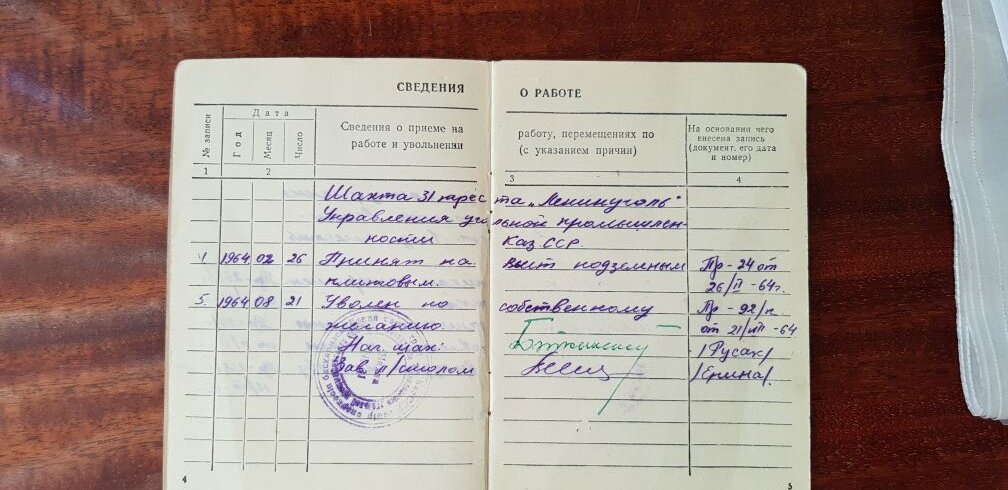 СВЕДЕНИЯ О РАБОТЕ
№ записи
Дата
Год
Месяц
Число
Сведения о приеме на
работе и увольнении
работу, перемещениях по
(с указанием причин)
На основании чего
внесена запись
(документ, его дата
и номер)
1 2 3 4
Шахта 31 треста „Ленинуголь"
Управления угольной промышлен-
ности Каз ССР.
4. 1964 02 26 Принят на подземным Пр-24 от
26/II-64г.
плитовым.
5. 1964 08 21 Уволен по собственному Пр-92/к
желанию. от 21/VIII-64
Нач. шах: /Русак/
Зав. п/столом /Ерина/.
4
5